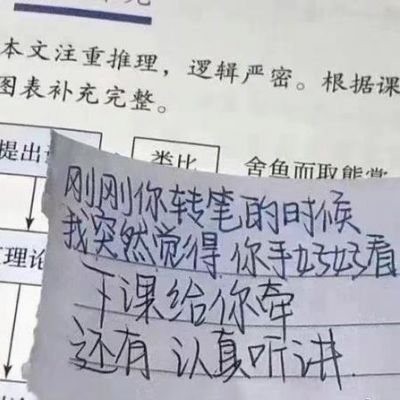 本文注重推理，逻辑严密。根据课
图表补充完整。
提出
类比
舍鱼而取熊掌
理论
刚刚你转笔的时候
我突然觉得 你手好好看
下课给你牵
还有 认真听讲